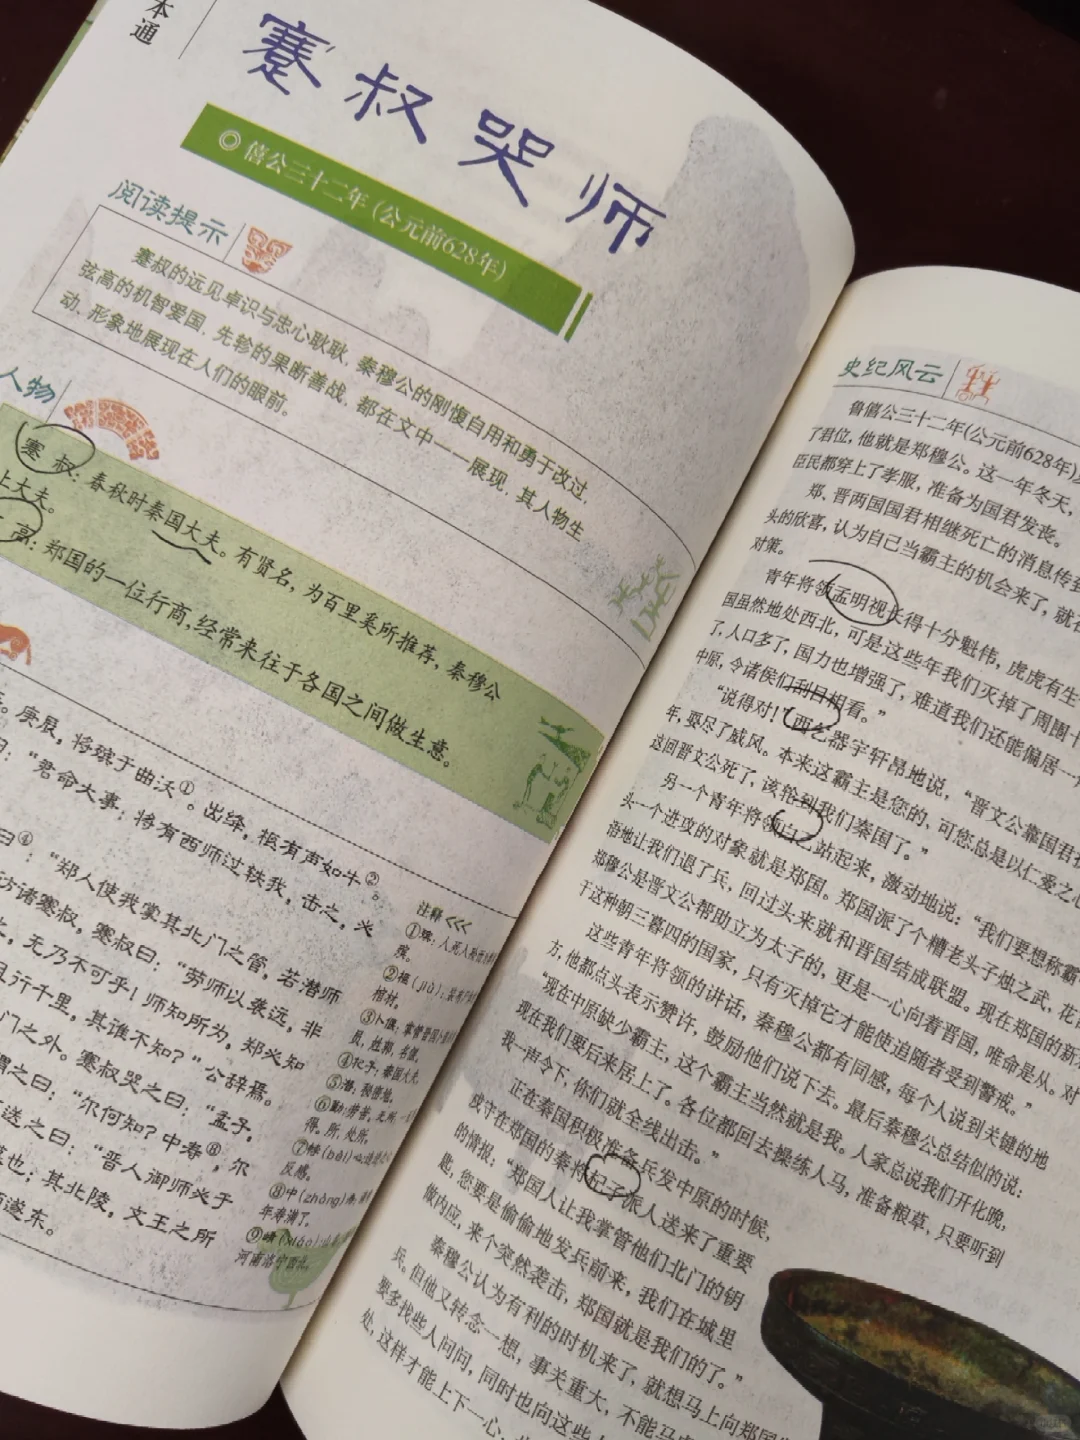 本通
蹇叔哭师
◎ 僖公三十二年 (公元前628年)
阅读提示
蹇叔的远见卓识与忠心耿耿, 秦穆公的刚愎自用和勇于改过,
弦高的机智爱国, 先轸的果断善战, 都在文中一一展现, 其人物生
动、形象地展现在人们的眼前。
人物
蹇叔: 春秋时秦国大夫。有贤名, 为百里奚所推荐, 秦穆公
上大夫。
高: 郑国的一位行商, 经常来往于各国之间做生意。
庚辰, 将殡于曲沃①。出绛, 柩有声如牛②。
曰: “君命大事: 将有西师过轶我, 击之, 必
曰④: “郑人使我掌其北门之管, 若潜师
访诸蹇叔, 蹇叔曰: “劳师以袭远, 非
, 无乃不可乎! 师知所为, 郑必知
且行千里, 其谁不知? ”公辞焉。
门之外。蹇叔哭之曰: “孟子,
谓之曰: “尔何知? 中寿⑧, 尔
送之曰: “晋人御师必于
墓也; 其北陵, 文王之所
遂东。
注释 <<<
①殡: 人死入殓
②柩 (jiù):
棺材。
③卜偃:
④杞子: 秦国大夫。
⑤潜: 秘密地。
⑥勤: 劳苦, 无所
得。所, 处所。
⑦悖 (bèi)
反感。
⑧中(zhōng)寿
年寿满了。
⑨崤 (xiáo)
河南洛宁西北。
史纪风云
鲁僖公三十二年(公元前628年)
了君位, 他就是郑穆公。这一年冬天,
臣民都穿上了孝服, 准备为国君发丧。
郑、晋两国国君相继死亡的消息传到
头的欣喜, 认为自己当霸主的机会来了, 就
对策。
青年将领孟明视长得十分魁伟, 虎虎有生
国虽然地处西北, 可是这些年我们灭掉了周围十
了, 人口多了, 国力也增强了, 难道我们还能偏居一
中原, 令诸侯们刮目相看。”
“说得对!”西乞器宇轩昂地说, “晋文公靠国君
年, 耍尽了威风。本来这霸主是您的, 可您总是以仁爱之心
这回晋文公死了, 该轮到我们秦国了。”
另一个青年将领白乙站起来, 激动地说: “我们要想称霸
头一个进攻的对象就是郑国。郑国派了个糟老头子烛之武, 花言
语地让我们退了兵, 回过头来就和晋国结成联盟。现在郑国的新
郑穆公是晋文公帮助立为太子的, 更是一心向着晋国, 唯命是从。对
于这种朝三暮四的国家, 只有灭掉它才能使追随者受到警戒。”
这些青年将领的讲话, 秦穆公都有同感, 每个人说到关键的地
方, 他都点头表示赞许, 鼓励他们说下去。最后秦穆公总结似的说:
“现在中原缺少霸主, 这个霸主当然就是我。人家总说我们开化晚,
现在我们要后来居上了。各位都回去操练人马, 准备粮草, 只要听到
我一声令下, 你们就全线出击。”
正在秦国积极准备兵发中原的时候,
戍守在郑国的秦将杞子派人送来了重要
的情报: “郑国人让我掌管他们北门的钥
匙, 您要是偷偷地发兵前来, 我们在城里
做内应, 来个突然袭击, 郑国就是我们的了。”
秦穆公认为有利的时机来了, 就想马上向郑国
兵。但他又转念一想, 事关重大, 不能马
要多找些人问问, 同时也向这些
处, 这样才能上下一心,